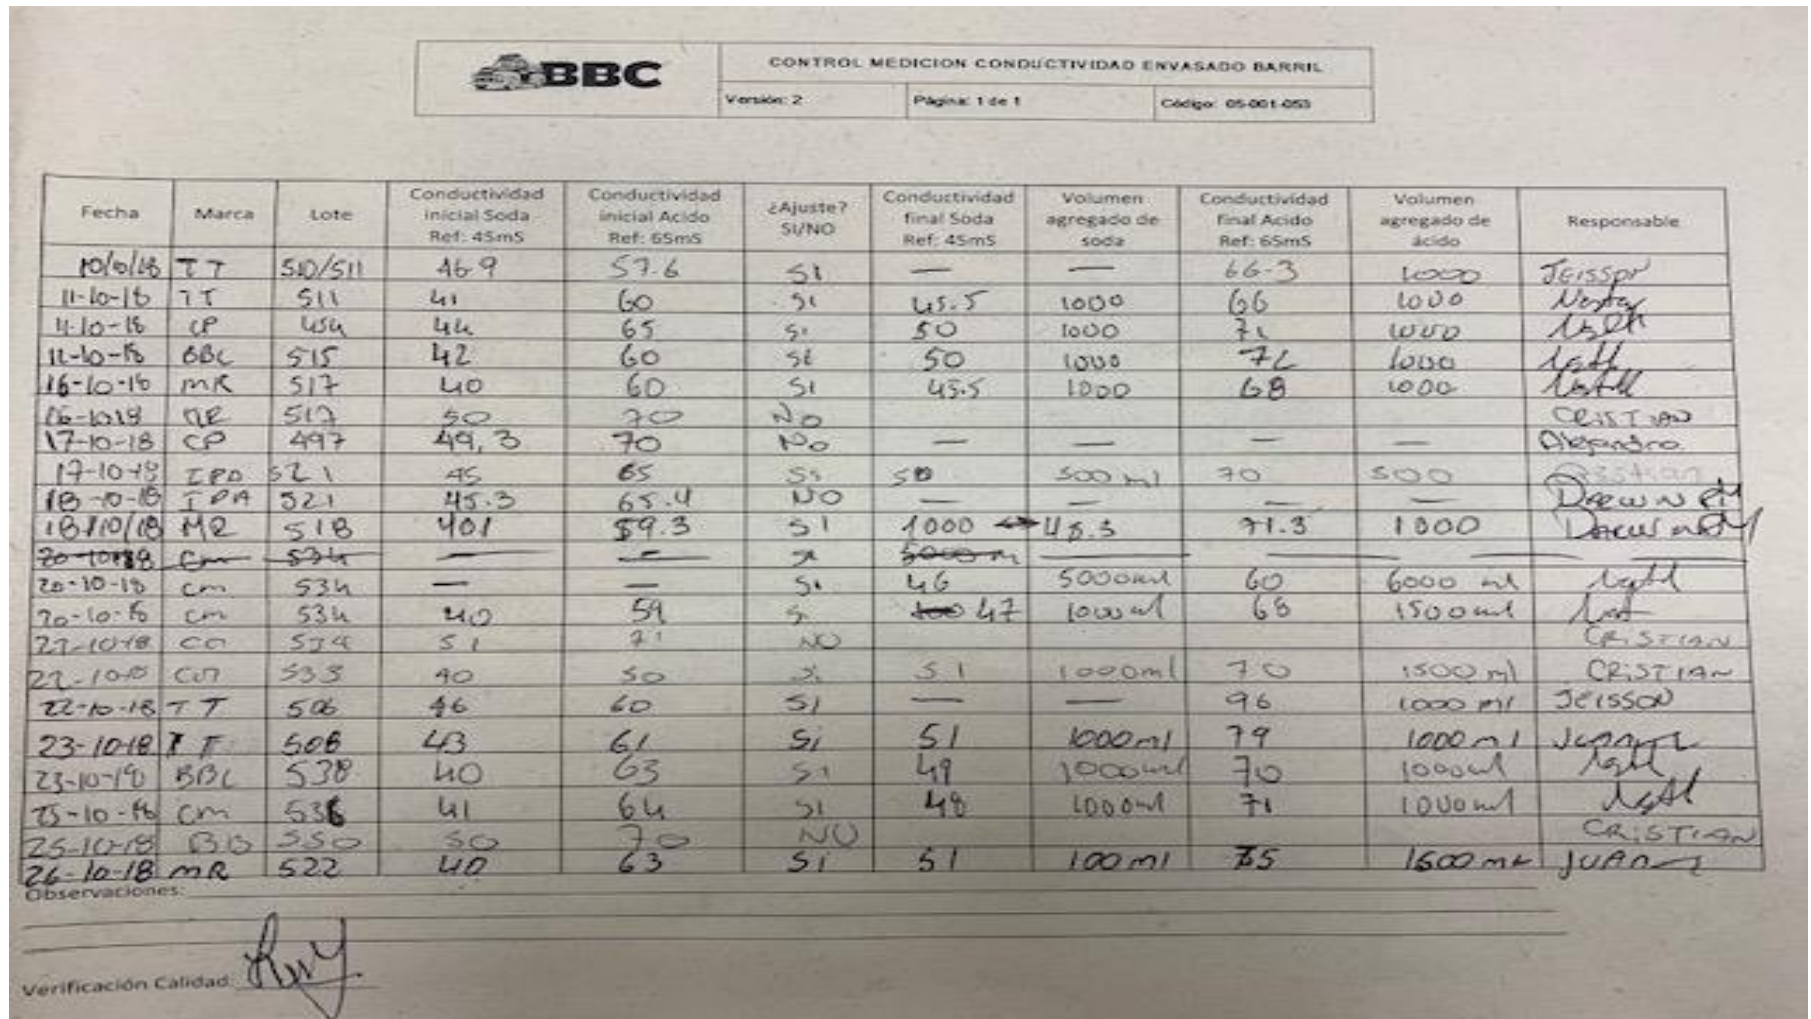 BBC
CONTROL MEDICION CONDUCTIVIDAD ENVASADO BARRIL
Versión: 2 Página: 1 de 1 Código: 05-001-053
Fecha Marca Lote Conductividad inicial Soda Ref: 45mS Conductividad inicial Acido Ref: 65mS ¿Ajuste? SI/NO Conductividad final Soda Ref: 45mS Volumen agregado de soda Conductividad final Acido Ref: 65mS Volumen agregado de ácido Responsable
TT 510/511 46.9 57.6 SI — — 66.3 1000
11-10-18 TT 511 41 60 SI 45.5 1000 66 1000
11-10-18 CP 454 44 65 SI 50 1000 71 1000
BBC 515 42 60 SI 50 1000 72 1000
16-10-18 MR 517 40 60 SI 1000 68 1000
517 50 70 No CRISTIAN
17-10-18 CP 497 49,3 70 No — — — — Alejandro
17-10-18 521 45 65 Si 50 500 ml 70 500
18-10-18 IPA 521 45.3 65.4 NO — — — —
18/10/18 MR 518 401 59.3 SI 1000 ↔ 48.3 71.3 1000
20-10-18 Cm 534 — —
20-10-18 cm 534 — — Si 46 5000ml 60 6000 ml
20-10-18 cm 534 40 59 Si 47 1000 ml 68 1500ml
534 51 71 NO CRISTIAN
533 40 50 Si 51 1000ml 70 1500 ml CRISTIAN
22-10-18 TT 506 46 60 SI — — 96 1000 ml JEISSON
23-10-18 506 43 61 Si 51 1000ml 79 1000 ml
23-10-18 BBC 538 40 63 SI 49 1000ml 70 1000ml
25-10-18 cm 536 41 64 SI 48 1000ml 71 1000ml
25-10-18 550 50 70 NO CRISTIAN
26-10-18 MR 522 40 63 SI 51 100 ml 75 JUAN
Observaciones:
Verificación Calidad: